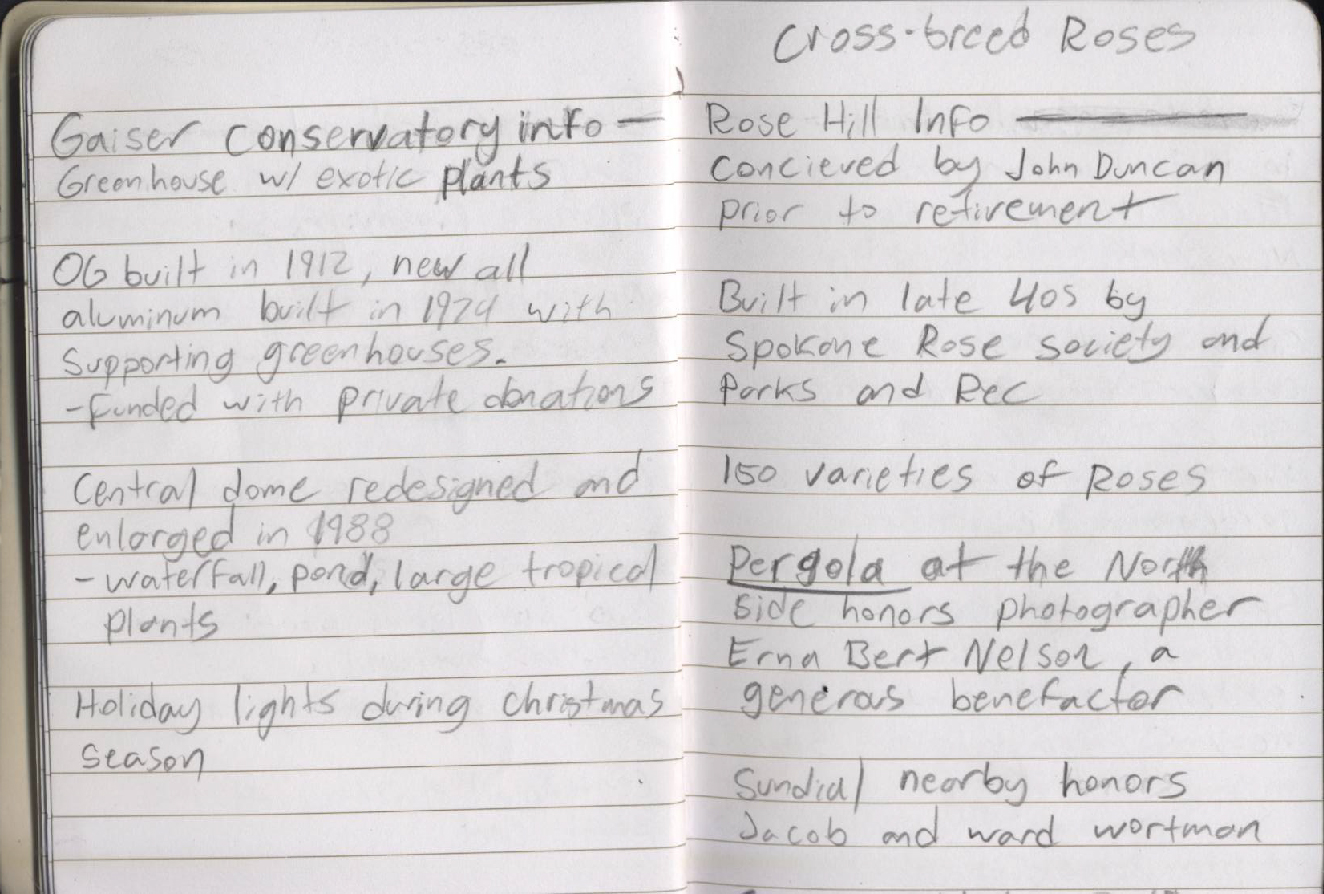 Gaiser Conservatory info —
Greenhouse w/ exotic plants
OG built in 1912, new all
aluminum built in 1974 with
Supporting greenhouses.
- funded with private donations
Central dome redesigned and
enlarged in 1988
- waterfall, pond, large tropical
plants
Holiday lights during christmas
season
Cross-breed Roses
Rose Hill Info
Concieved by John Duncan
prior to retirement
Built in late 40s by
Spokane Rose society and
Parks and Rec
150 varieties of Roses
Pergola at the North
side honors photographer
Erna Bert Nelson, a
generous benefactor
Sundial nearby honors
Jacob and ward wortman